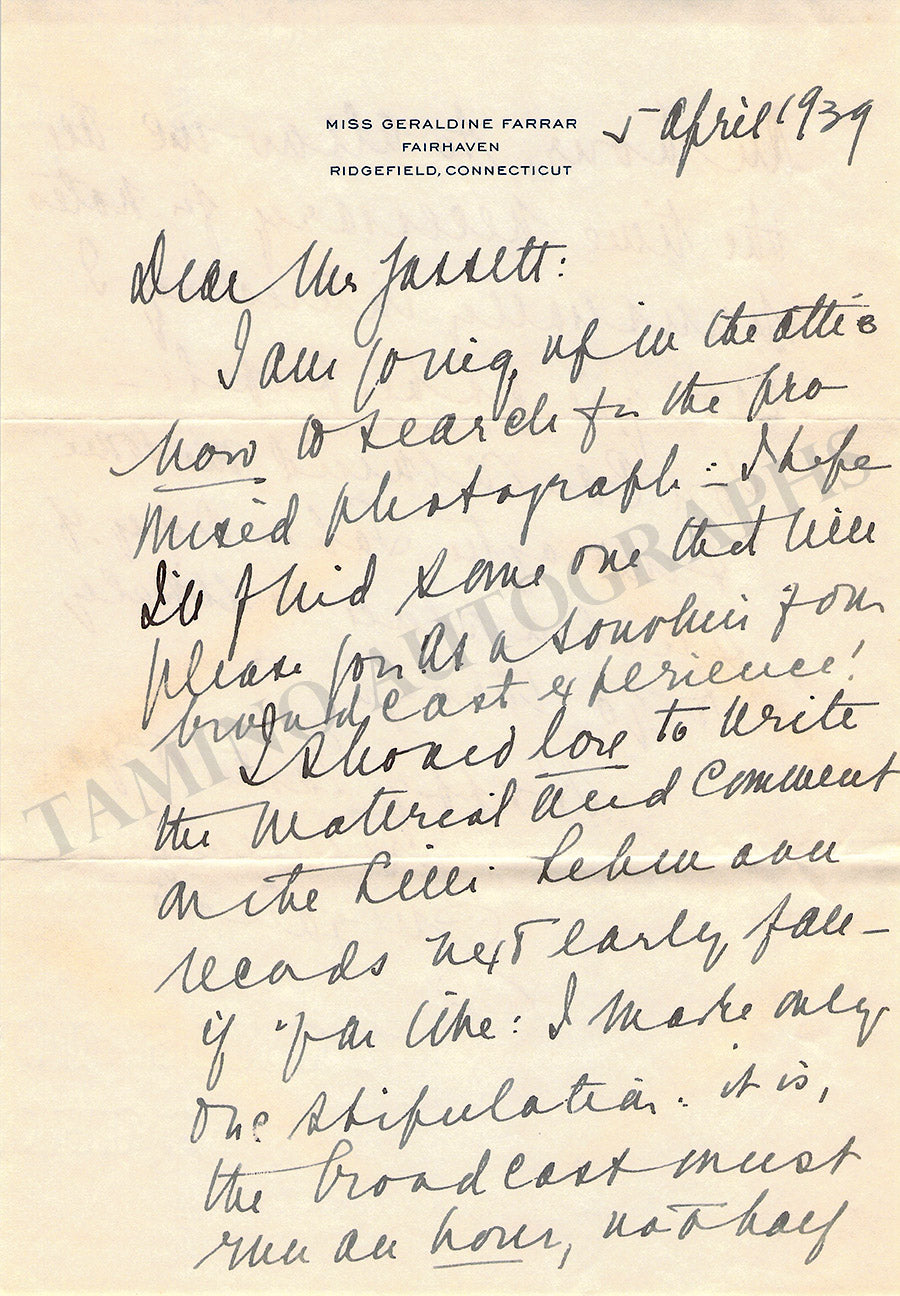 MISS GERALDINE FARRAR
FAIRHAVEN
RIDGEFIELD, CONNECTICUT
5 April 1939
Dear Mr Jassett:
I am going up in the attic
now to search for the pro
mised photograph: - I hope
I'll find some one that will
please you as a souvenir of our
broadcast experience!
I should love to write
the material and comment
on the Lilli Lehmann
records next early fall -
if you like: I make only
one stipulation. it is,
the broadcast must
run an hour, not half
TAMINO AUTOGRAPHS